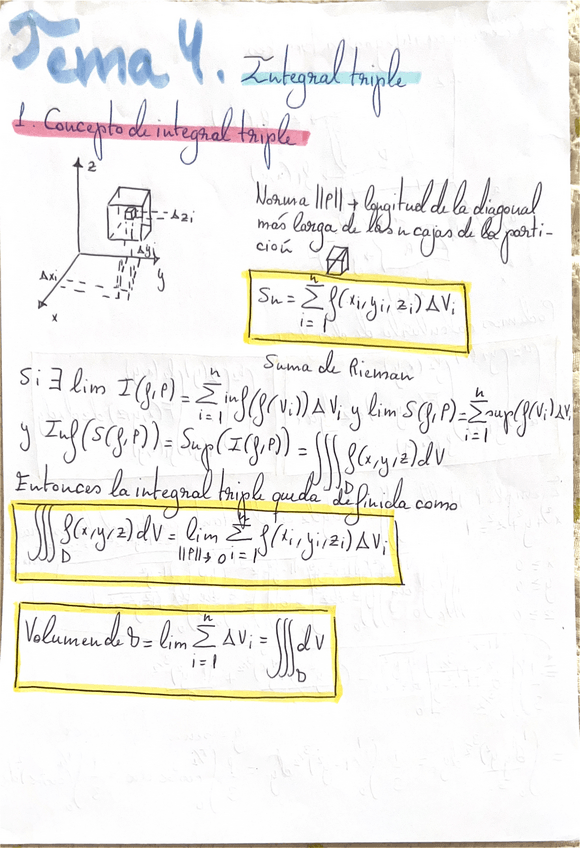 Tema 4. Integral triple
1. Concepto de integral triple
z
Δzi
Δyi
Δxi
y
x
Norma ||P|| → longitud de la diagonal
más larga de las n cajas de la parti-
ción
Sn = ∑_{i=1}^{n} f(xi, yi, zi) ΔVi
Suma de Rieman
Si ∃ lim I(f,P) = ∑_{i=1}^{n} inf(f(Vi)) ΔVi y lim S(f,P) = ∑_{i=1}^{n} sup(f(Vi) ΔVi
y Inf(S(f,P)) = Sup(I(f,P)) = ∭_D f(x,y,z) dV
Entonces la integral triple queda definida como
∭_D f(x,y,z) dV = lim_{||P||→0} ∑_{i=1}^{n} f(xi, yi, zi) ΔVi
Volumen de = lim ∑_{i=1}^{n} ΔVi = ∭_D dV